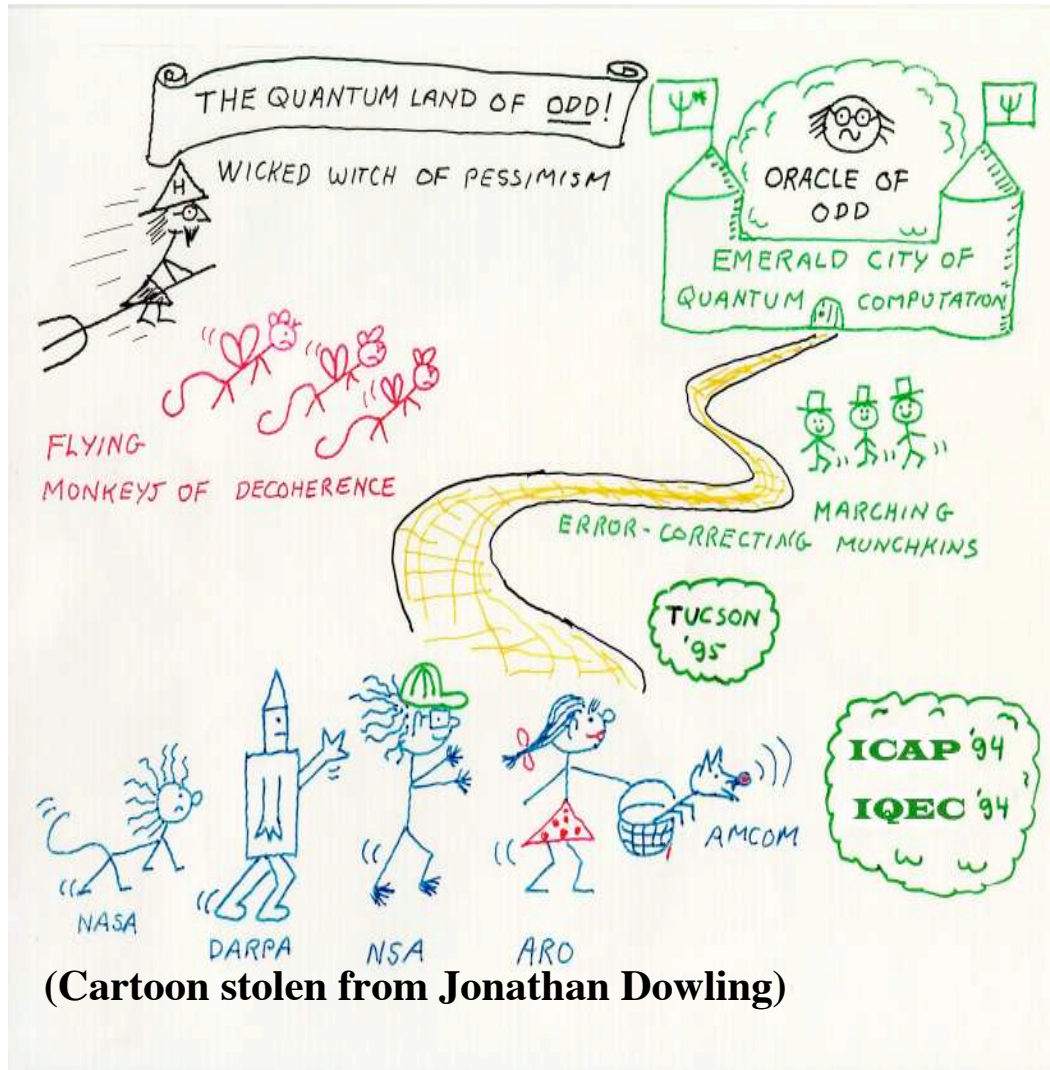 THE QUANTUM LAND OF ODD!
WICKED WITCH OF PESSIMISM
H
Ψ*
Ψ
ORACLE OF
ODD
EMERALD CITY OF
QUANTUM COMPUTATION
FLYING
MONKEYS OF DECOHERENCE
MARCHING
ERROR-CORRECTING MUNCHKINS
TUCSON
'95
ICAP '94
IQEC '94
AMCOM
NASA
DARPA
NSA
ARO
(Cartoon stolen from Jonathan Dowling)